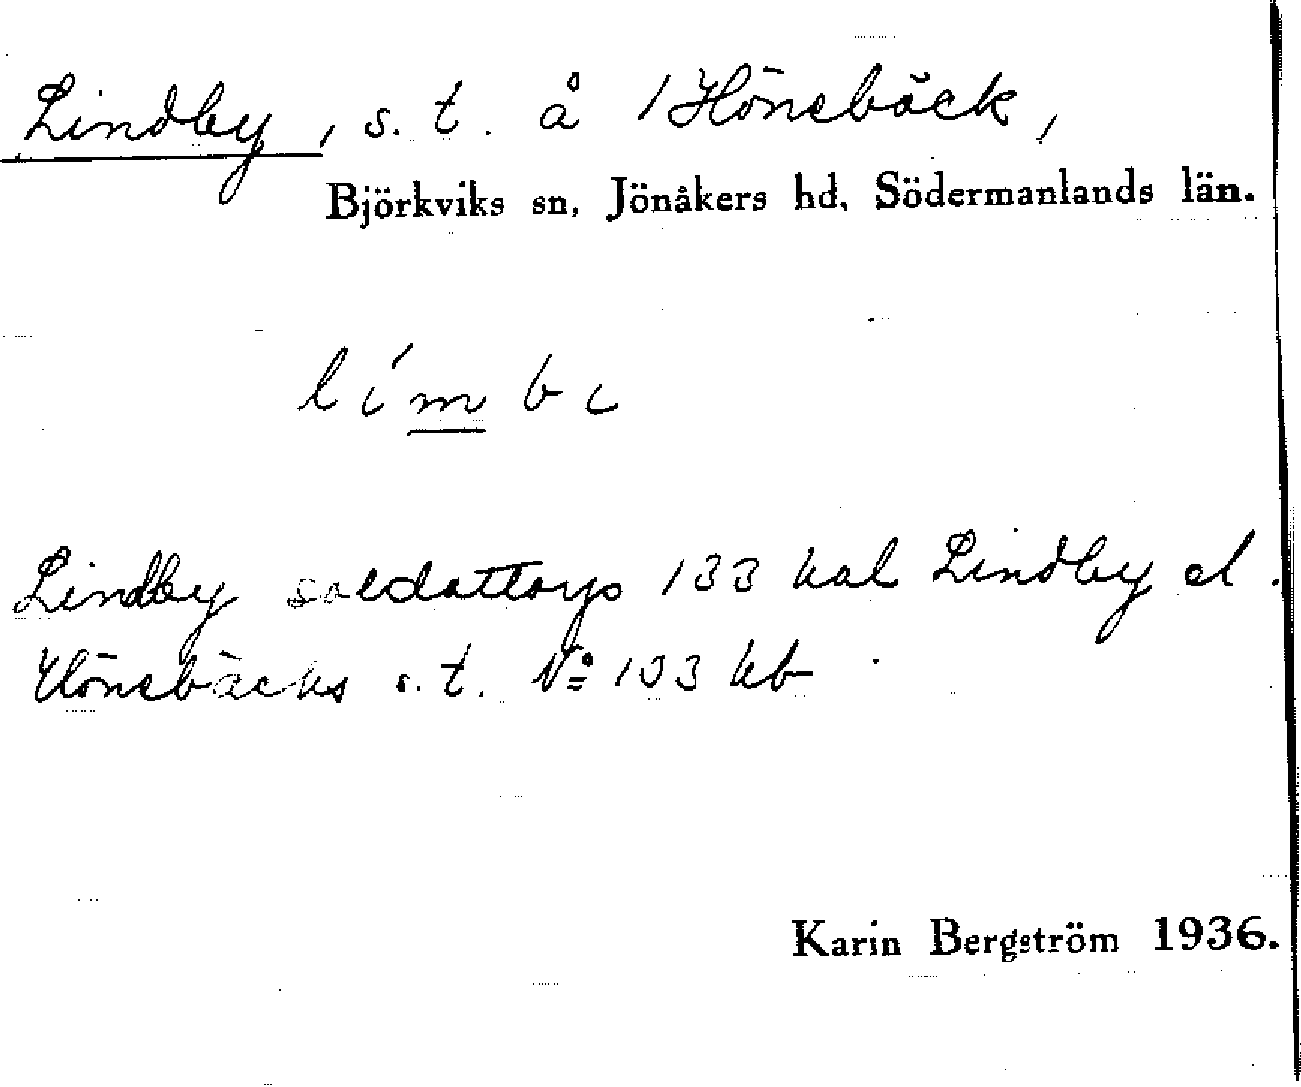 Lindby, s. t. å 1 Hönsbäck,
Björkviks sn, Jönåkers hd, Södermanlands län.
lím bi
Lindby soldattorp 133 hal Lindby el.
Hönsbäcks s. t. No 133 kb
Karin Bergström 1936.